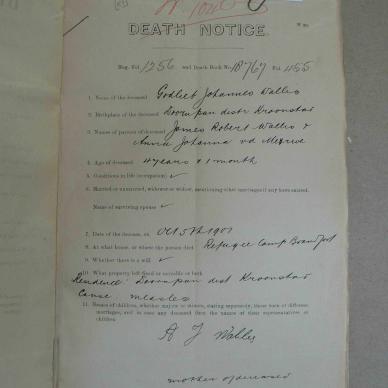 DEATH NOTICE.
Reg. Fol. 1256 and Death Book No. 18767 Fol. 455
1. Name of the deceased Godlieb Johannes Wallis
2. Birthplace of the deceased Doornpan distr Kroonstad
3. Names of parents of deceased James Robert Wallis &
Anna Johanna vd Merwe
4. Age of deceased 4 years & 1 month
5. Conditions in life (occupation) ✓
6. Married or unmarried, widower or widow, mentioning other marriages if any have existed.
Name of surviving spouse ✓
7. Date of the decease, on Oct 5th 1901
8. At what house, or where the person died Refugee Camp Brandfort
9. Whether there is a will ✓
10. What property left fixed or movable or both
Residence Doornpan dist Kroonstad
Cause measles
11. Names of children, whether majors or minors, stating separately, those born of different
marriages, and in case any deceased then the names of their representatives or
children.
A J Wallis
mother of deceased